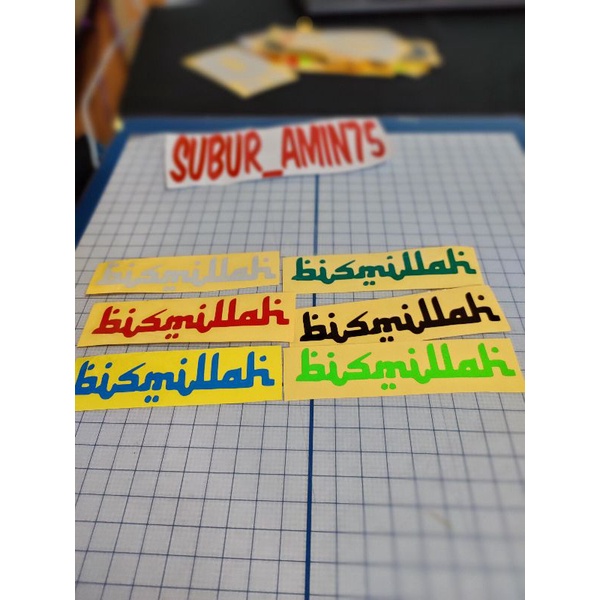 SUBUR_AMIN75
bismillah bismillah
bismillah bismillah
bismillah bismillah